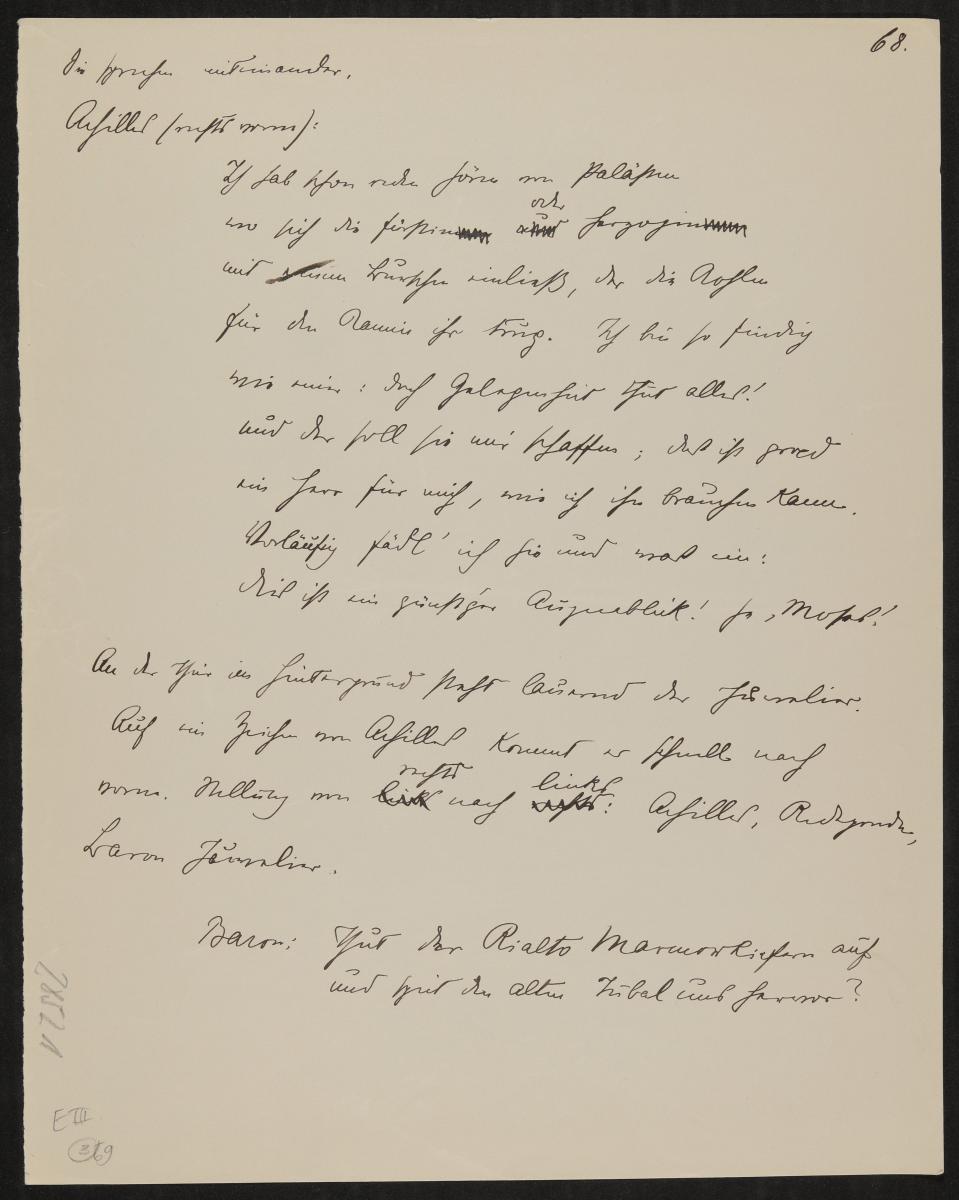 68.
die sprechen miteinander.
Achilles (rechts vorne):
Ich hab schon reden hören von Palästen
wo sich die Fürstin oder Herzogin
mit einem Burschen einließ, der die Kohlen
für den Kamin ihr trug. Ich bin so findig
wie einer: doch Gelegenheit thut alles!
und der soll sie mir schaffen; das ist grad
ein Herr für mich, wie ich ihn brauchen kann.
Vorläufig fädl' ich hie und was ein:
dies ist ein günst'ger Augenblick! he, Moses!
An der Thür im Hintergrund steht lauernd der Juwelier.
Auf ein Zeichen von Achilles kommt er schnell nach
vorne. Stellung von rechts nach links: Achilles, Redegonda,
Baron Juwelier.
Baron: Thut der Rialto Marmorkiefern auf
und speit den alten Tubal uns hervor?
2852 1
E III
369